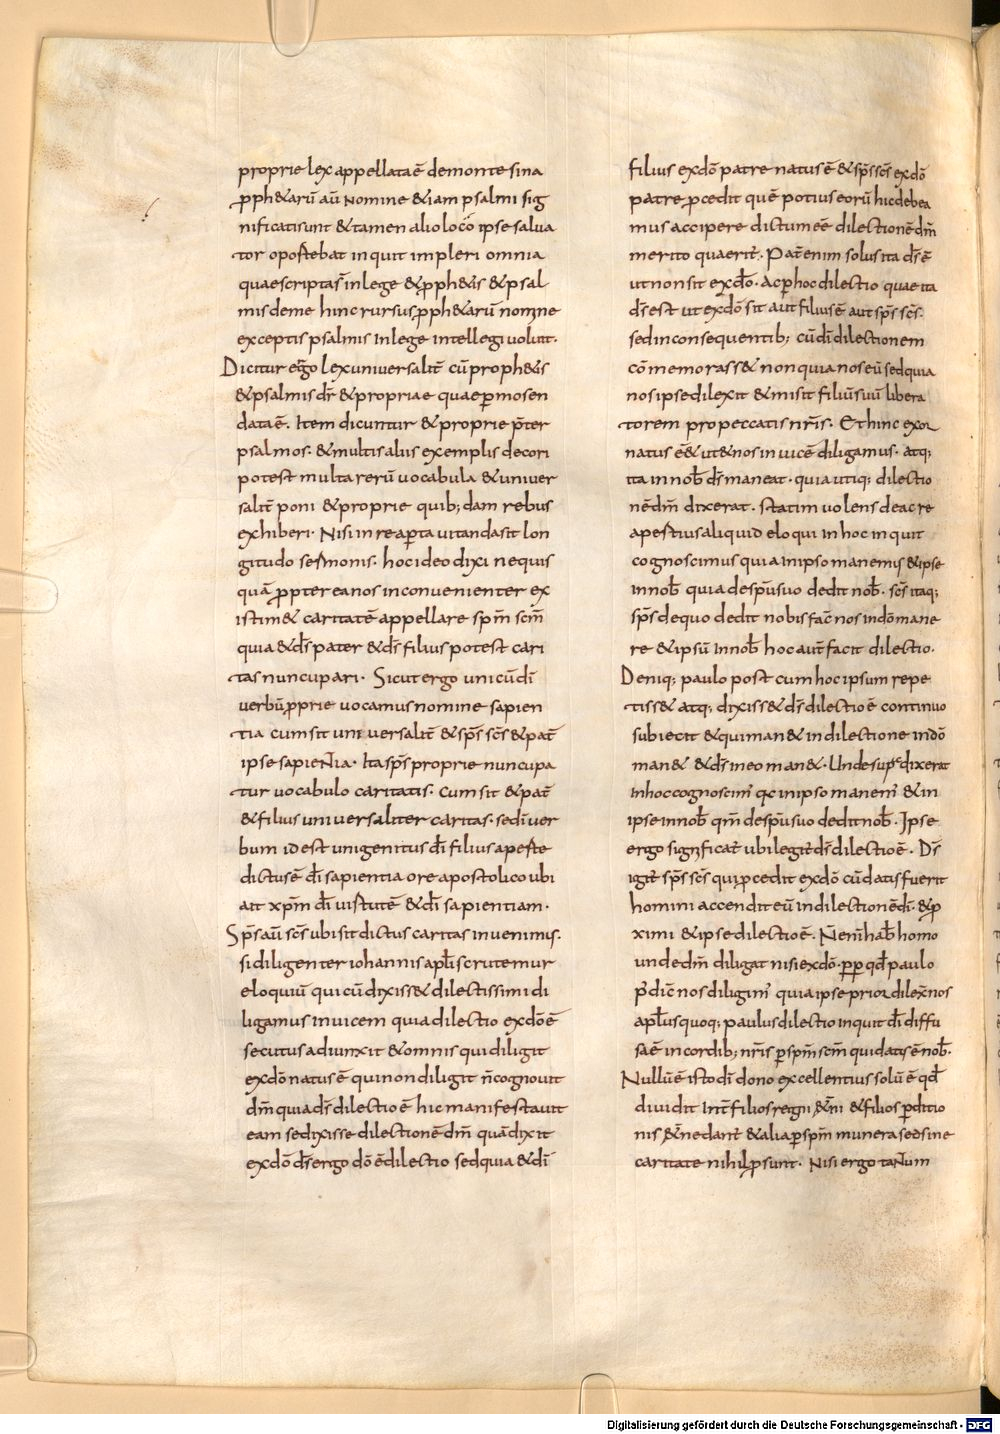 proprie lex appellata ē de monte sina
ꝓph&arū aū nomine &iam psalmi sig
nificati sunt & tamen alio loco ipse salua
tor oportebat inquit impleri omnia
quae scripta sr̄ in lege & ꝓph&is & psal
mis de me hinc rursus ꝓph&arū nomine
exceptis psalmis in lege intellegi uoluit.
Dicitur ergo lex uniuersalit̄ cū proph&is
& psalmis dr̄ & propriae quae ꝑ mosen
data ē. Item dicuntur & proprie p̄ter
psalmos. & multis aliis exemplis decori
potest multa rerū uocabula & uniuer
salit̄ poni & proprie quib; dam rebus
exhiberi. Nisi in re aꝑta uitanda sit lon
gitudo sermonis. hoc ideo dixi ne quis
quā ꝓpterea nos inconuenienter ex
istim& caritatē appellare spm̄ scm̄
quia & ds̄ pater & ds̄ filius potest cari
tas nuncupari. Sicut ergo unicū dī
uerbū ꝓprie uocamus nomine sapien
tia cum sit uniuersalit̄ & sps̄ scs̄ & pat̄
ipse sapientia. Ita sps̄ proprie nuncupa
tur uocabulo caritatis. Cum sit & pat̄
& filius uniuersaliter caritas. sed iuer
bum id est unigenitus dī filius aperte
dictus ē dī sapientia ore apostolico ubi
ait xpm̄ dī uirtutē & dī sapientiam.
Sps̄ aū scs̄ ubi sit dictus caritas inuenimis.
si diligenter iohannis aplī scrutemur
eloquiū qui cū dixiss& dilectissimi di
ligamus inuicem quia dilectio ex dō ē
secutus adiunxit & omnis qui diligit
ex dō natus ē qui non diligit n̄ cognouit
dm̄ quia ds̄ dilectio ē hic manifestauit
eam se dixisse dilectionē dm̄ quā dixit
ex dō ds̄ ergo dō ē dilectio sed quia & dī
filius ex dō patre natus ē & sps̄ scs̄ ex dō
patre ꝓcedit quē potius eorū hic debea
mus accipere dictum eē dilectionē dm̄
merito quaerit̄. Pat̄ enim solus ita ds̄ ē
ut non sit ex dō. Ac ꝑ hoc dilectio quae ita
ds̄ est ut ex dō sit aut filius ē aut sps̄ scs̄.
sed in consequentib; cū dī dilectionem
cōmemorass& non qua nos eū sed quia
nos ipse dilexit & misit filiū suū libera
torem pro peccatis nr̄is. Et hinc exor
natus ē & ut & nos inuicē diligamus. atq;
ita in nob̄ ds̄ maneat. quia utiq; dilectio
nē dm̄ dixerat. statim uolens de ac re
apertius aliquid eloqui in hoc inquit
cognoscimus quia in ipso manemus & ipse
in nob̄ quia de spū suo dedit nob̄. scs̄ itaq;
sps̄ de quo dedit nobis fac̄ nos in dō mane
re & ipsū in nob̄ hoc aut̄ facit dilectio.
Deniq; paulo post cum hoc ipsum repe
tiss& atq; dixiss& ds̄ dilectio ē continuo
subiecit & qui man& in dilectione in dō
man& & ds̄ in eo man&. Unde sup̄ dixerat
In hoc cognoscim' qc in ipso manem' & in
ipse in nob̄ qm̄ de spū suo dedit nob̄. Ipse
ergo significat̄ ubi legit̄ ds̄ dilectio ē. Ds̄
igit̄ sps̄ scs̄ qui ꝓcedit ex dō cū datis fuerit
homini accendit eū in dilectionē dī. & ꝓ
ximi & ipse dilectio ē. N̄ enī hab̄ homo
unde dm̄ diligat nisi ex dō. ꝑp qd̄ paulo
p̄ dic̄ nos diligim' quia ipse prior dilex̄ nos
apl̄us quoq; paulus dilectio inquit dī diffu
sa ē in cordib; nr̄is ꝑ spm̄ scm̄ qui datis ē nob̄.
Nullū ē isto dī dono excellentius solū ē qd̄
diuidit int̄ filios regni & filios ꝑditio
nis dant̄ & alia ꝑ spm̄ munera sed sine
caritate nihil ꝓsunt. Nisi ergo tantum
Digitalisierung gefördert durch die Deutsche Forschungsgemeinschaft - DFG